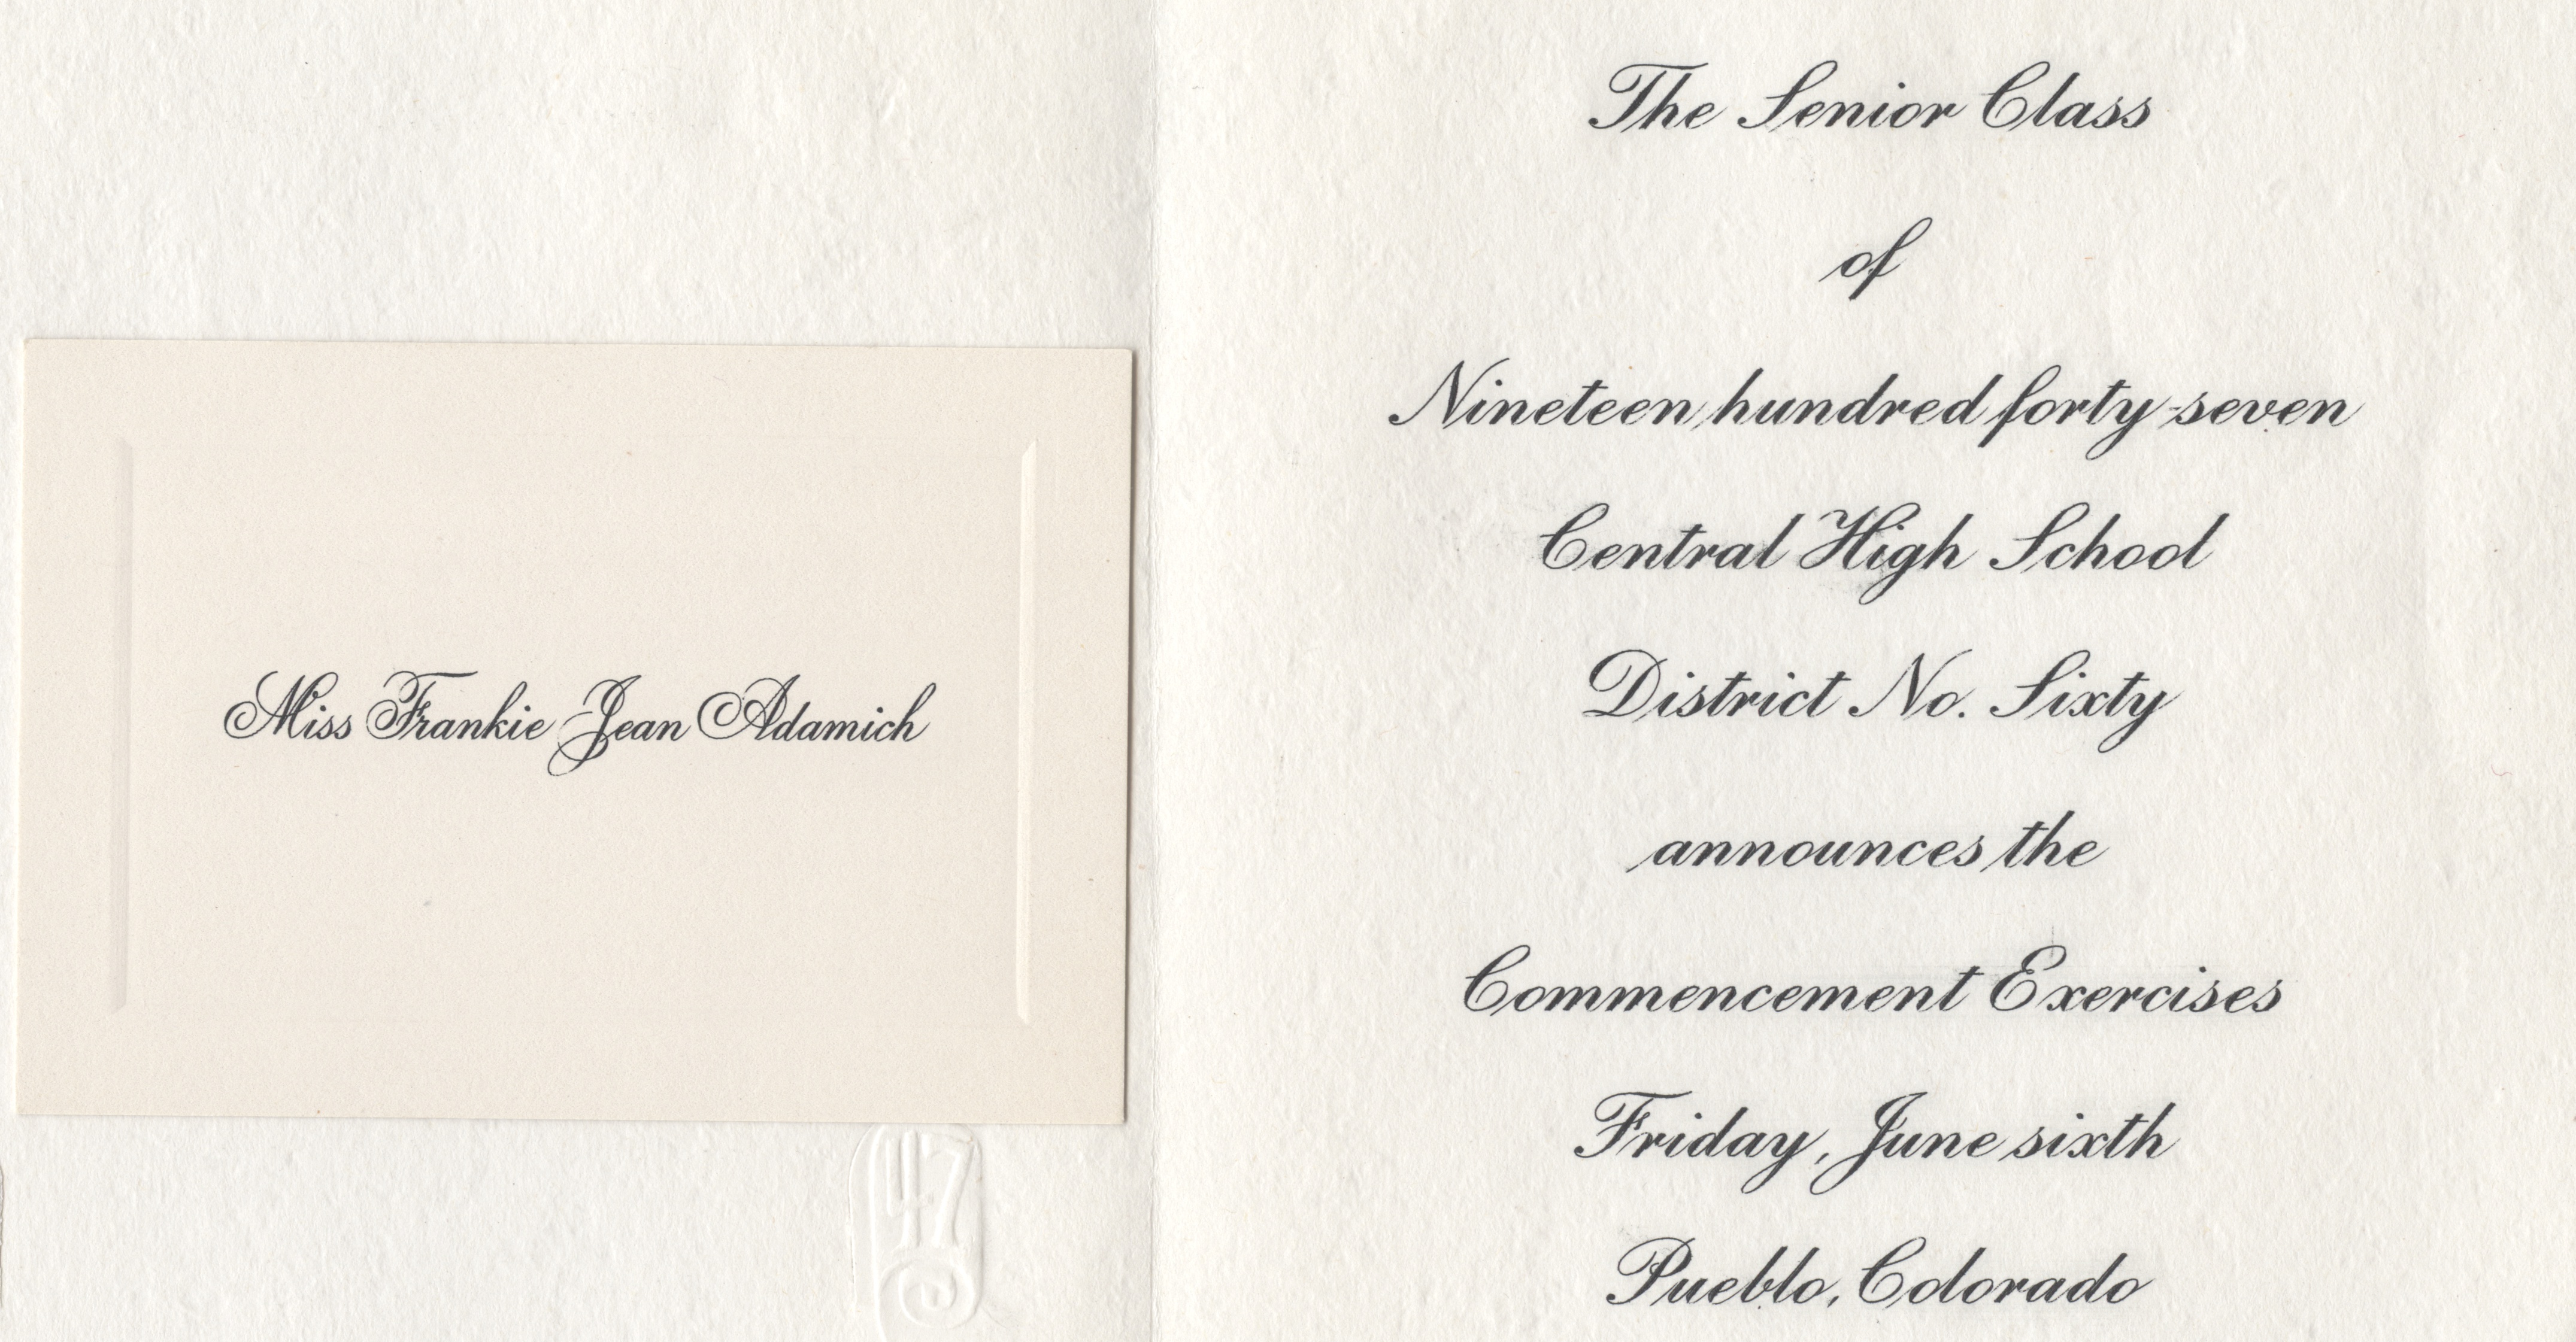 Miss Frankie Jean Adamich
47
The Senior Class
of
Nineteen hundred forty-seven
Central High School
District No. Sixty
announces the
Commencement Exercises
Friday, June sixth
Pueblo, Colorado